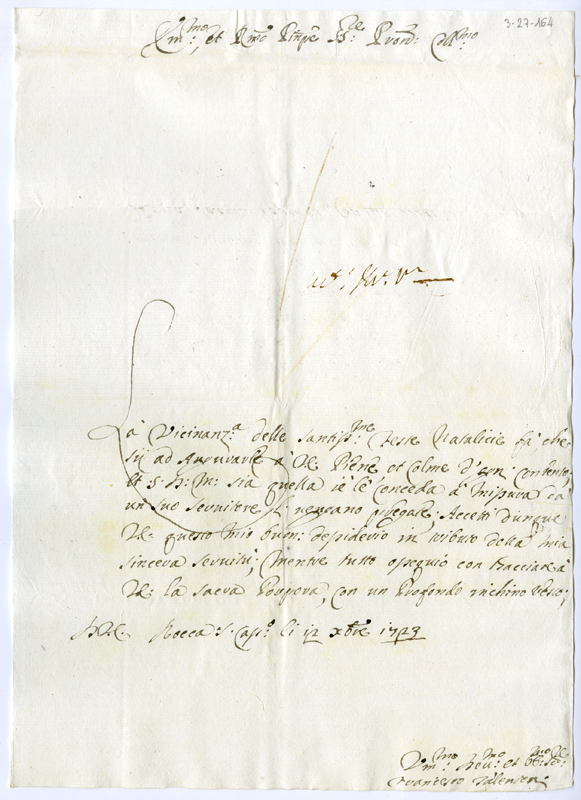 3-27-164
Em:mo, et Rmo Pnpe Sre: Pron: Coll:mo
La Vicinanz.a delle Santiss:me Feste Natalicie fà che
sij ad Augurarle à VE Piene et Colme d'ogn: Contento,
et S: D: M: sia quella ie le Conceda à misura da
un suo Servitore; Accetti dunque
VE: questo mio buon: desiderio in tributo della mia
sincera servitù; mentre tutto ossequio con bacciar à
VE: la sacra Porpora, con un Profondo inchino
Rocca: S: Cass:o li 12 Xbre 1723
Vm:mo Dev:mo et
Francesco Valensen